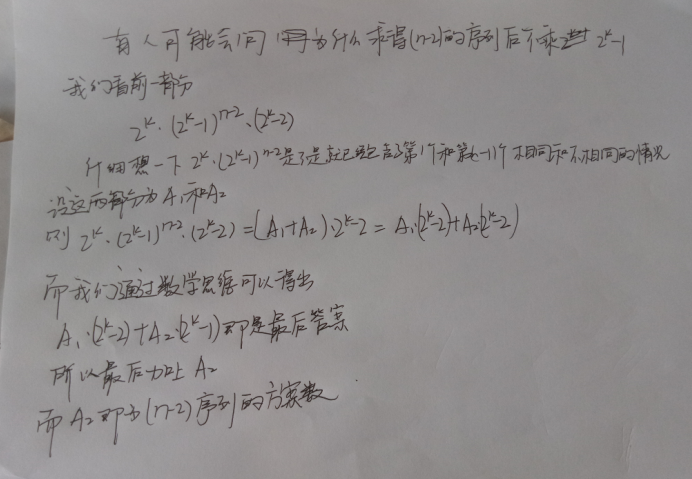 有人可能会问 为什么乘得(n-2)的序列后不乘 2^k-1
我们看前一部分
2^k·(2^k-1)^{n-2}·(2^k-2)
仔细想一下 2^k·(2^k-1)^{n-2}是不是就已经包含了第1个和第(n-1)个 相同和不相同的情况
设这两部分为 A₁和A₂
则 2^k·(2^k-1)^{n-2}·(2^k-2) = (A₁+A₂)·2^k-2 = A₁·(2^k-2)+A₂(2^k-2)
而我们通过数学思维可以得出
A₁·(2^k-2)+A₂·(2^k-1)即是最后答案
所以最后加上 A₂
而 A₂ 即为(n-2)序列的方案数